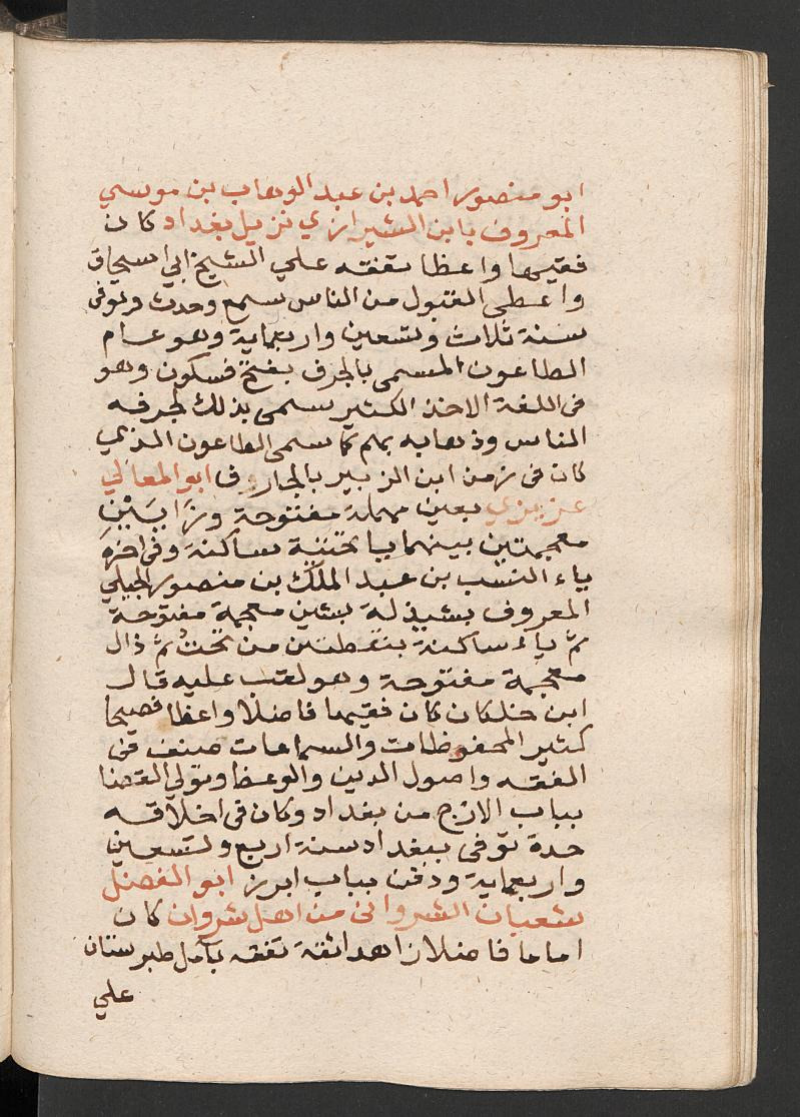 ابو منصور احمد بن عبد الوهاب بن موسي
المعروف بابن الشيرازي نزيل بغداد كان
فقيها واعظا تفقه علي الشيخ ابي اسحاق
واعطى القبول من الناس سمع وحدث وتوفى
سنة ثلاث وتسعين واربعماية وهو عام
الطاعون المسمى بالجرف بفتح فسكون وهو
فى اللغة الاخذ الكثير سمى بذلك لجرفه
الناس وذهابه بهم كما سمى الطاعون الذي
كان فى زمن ابن الزبير بالجارف ابو المعالي
عزيزي بعين مهملة مفتوحة وزايين
معجمتين بينهما يا تحتية ساكنة وفى اخره
ياء النسب بن عبد الملك بن منصور الجيلي
المعروف بشيذلة بشين معجمة مفتوحة
ثم ياء ساكنة بنقطتين من تحت ثم ذال
معجمة مفتوحة وهو لقب عليه قال
ابن خلكان كان فقيها فاضلا واعظا فصيحا
كثير المحفوظات والسماعات صنف فى
الفقه واصول الدين والوعظ وتولي القضا
بباب الازج من بغداد وكان فى اخلاقه
حدة توفى ببغداد سنة اربع وتسعين
واربعماية ودفن بباب ابرز ابو الفضل
شعبان الشروانى من اهل شروان كان
اماما فاضلا زاهدا ثقة تفقه بآمل طبرستان
علي